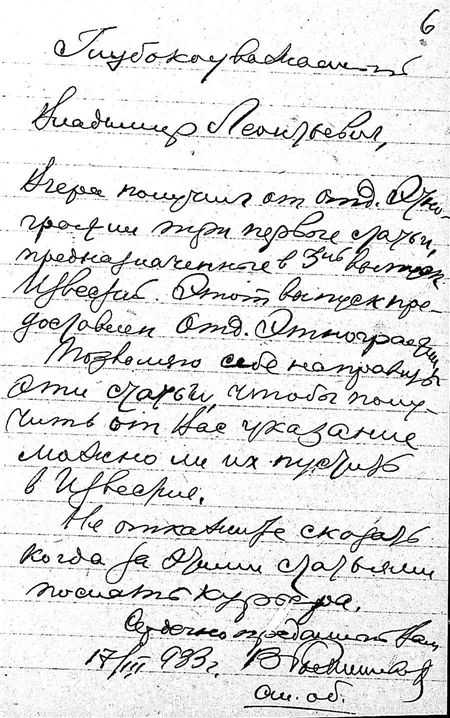 6
Глубокоуважаемый
Владимир Леонтьевич,
Вчера получил от отд. Этно-
графии три первые статьи,
предназначенные в 3ий выпуск
Известий. Этот выпуск пре-
доставлен Отд. Этнографии,
Позволяю себе направить
эти статьи, чтобы полу-
чить от Вас указание
можно ли их пустить
в Известия.
Не откажите сказать
когда за этими статьями
послать курьера.
Сердечно преданный Вам
17/III 933 г. В